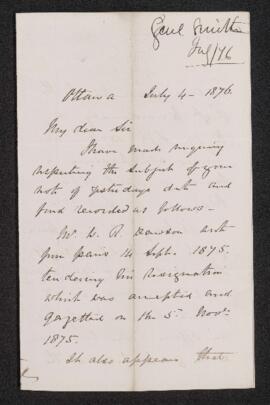 Genl Smith
July/76
Ottawa July 4 - 1876.
My dear Sir
I have made inquiry
respecting the subject of your
note of yesterdays date and
find recorded as follows -
Mr. S. R. Dawson
from paris 14 Sept. 1875.
tendering his resignation
which was accepted and
gazetted on the 5. Novr.
1875.
It also appears that